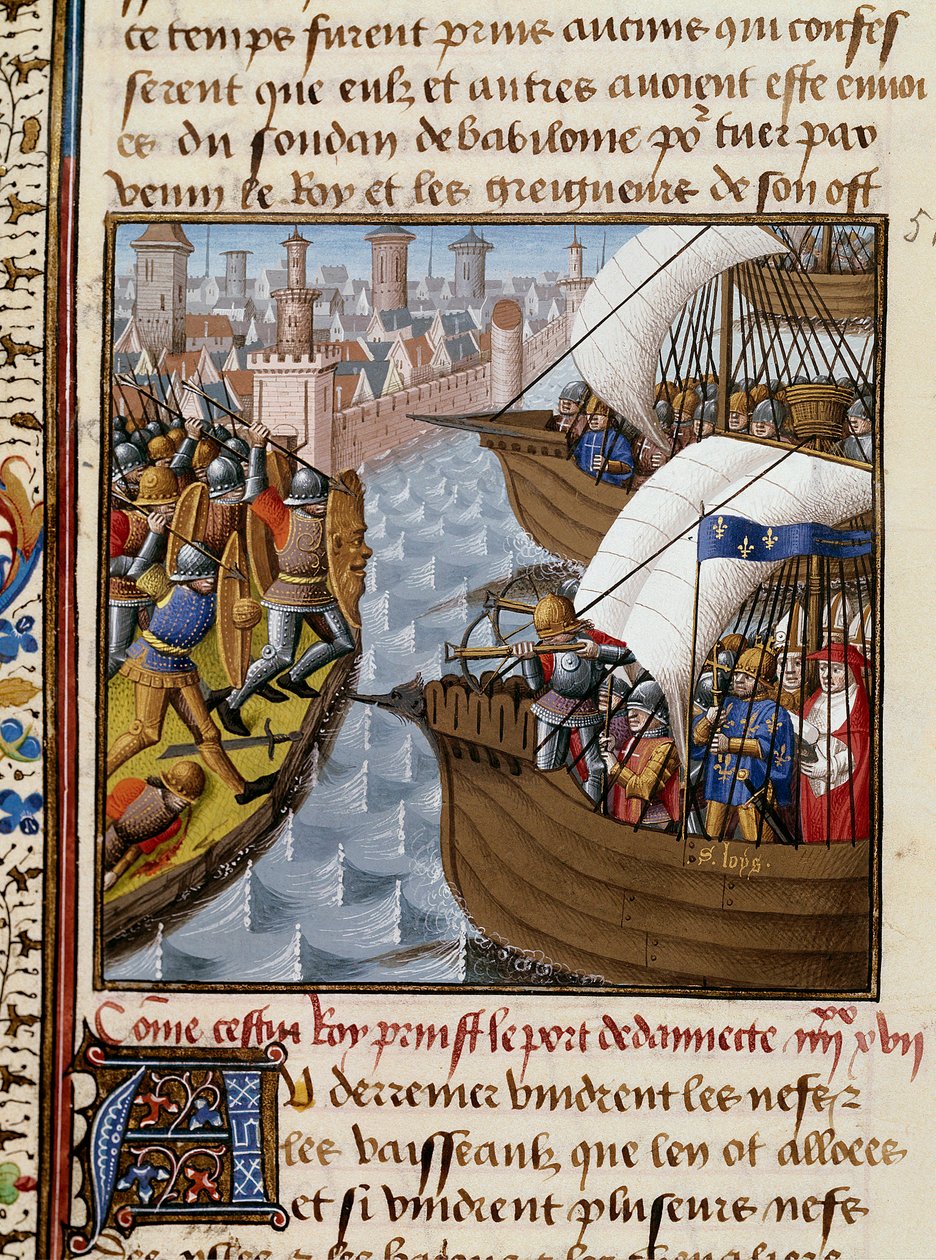 ce temps furent prins aucuns qui confes
serent que eulz et autres avoient este envoi
es du soudan de babilonne po᷑ tuer par
venin le Roy et les greigneurs de son ost
S. loys.
Cõme cestui Roy prinst le port de damiecte iiii xx xvii
AU derrenier vindrent les nefs z
les vaisseaulz que len ot alloees
et si vindrent pluseurs nefs